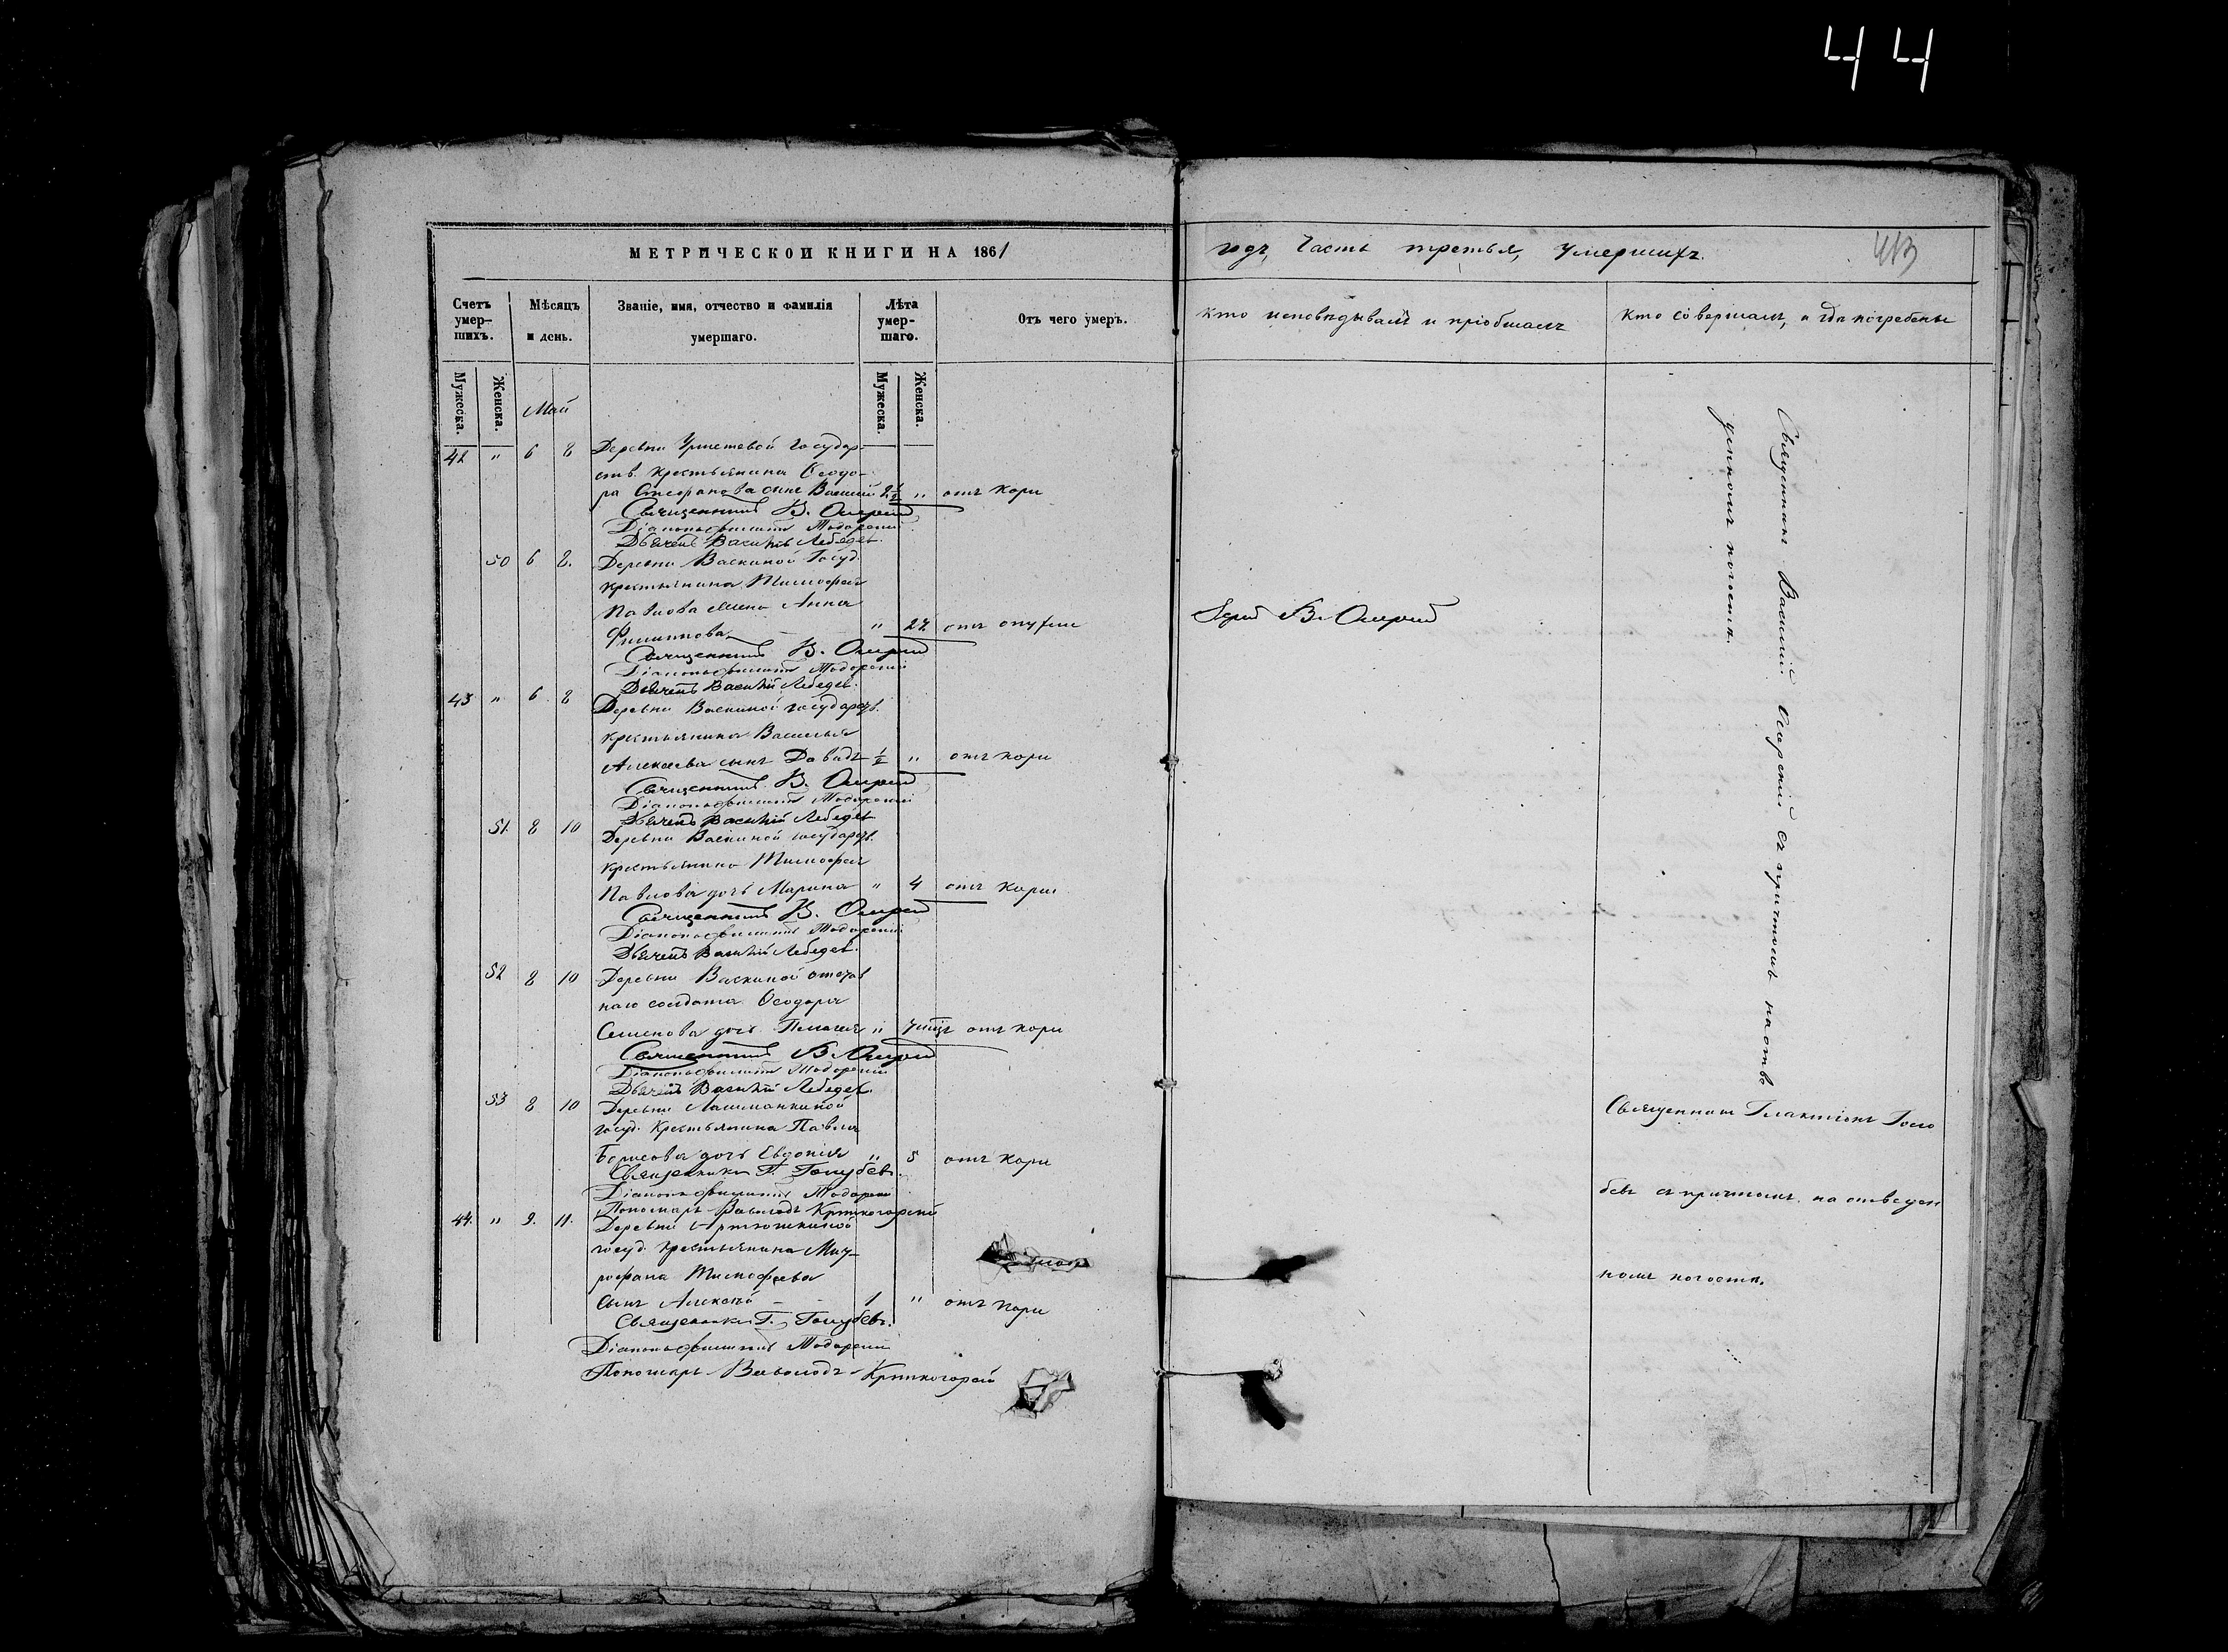 44
МЕТРИЧЕСКОЙ КНИГИ НА 1861
годъ, Часть третья, умершихъ.
Счетъ умер-шихъ.
Мѣсяцъ и день.
Званіе, имя, отчество и фамилія умершаго.
Лѣта умер-шаго.
Отъ чего умеръ.
Кто исповѣдывалъ и пріобщалъ
Кто совершалъ, и гдѣ погребены
Мужеска.
Женска.
Май
Мужеска.
Женска.
42 " 6 8 Деревни Государ-
ств. крестьянина Ѳеодо-
ра Стефанова сынъ Василій 2½ " отъ кори
Священникъ В.
Діаконъ Филиппъ
Дьячекъ Василій Лебедев.
50 6 8. Деревни Васкиной Госуд.
крестьянина Тимофея
Павлова жена Анна
Филиппова " 27 отъ опухли
Священникъ В.
Діаконъ Филиппъ
Дьячекъ Василій Лебедев.
Іерей В.
43 " 6 8 Деревни Васкиной государств.
крестьянина Василья
Алексеева сынъ Давидъ ½ " отъ кори
Священникъ В.
Діаконъ Филиппъ
Дьячекъ Василій Лебедев
51. 8 10 Деревни Васкиной государств.
крестьянина Тимофея
Павлова дочь Марина " 4 отъ кори
Священникъ В.
Діаконъ Филиппъ
Дьячекъ Василій Лебедев.
52 8 10 Деревни Васкиной отстав
наго солдата Ѳеодора
Семенова дочь Пелагея " 7 міц. отъ кори
Священникъ В.
Діаконъ Филиппъ
Дьячекъ Василій Лебедев.
53 8 10 Деревни Лашманкиной
госуд. Крестьянина Павла
Борисова дочь Евдокія " 5 отъ кори
Священникъ Г. Голубев.
Діаконъ Филиппъ
Пономарь
44. " 9. 11. Деревни Артюшкиной
госуд. крестьянина Мит-
рофана Тимофеева
сынъ Алексѣй 1 " отъ кори
Священникъ Г. Голубев.
Діаконъ Филиппъ
Пономарь
Священникъ Василій съ причтомъ на отве
денномъ погостѣ.
Священникъ Галактіонъ Голу
бевъ съ причтомъ на отведен
номъ погостѣ.